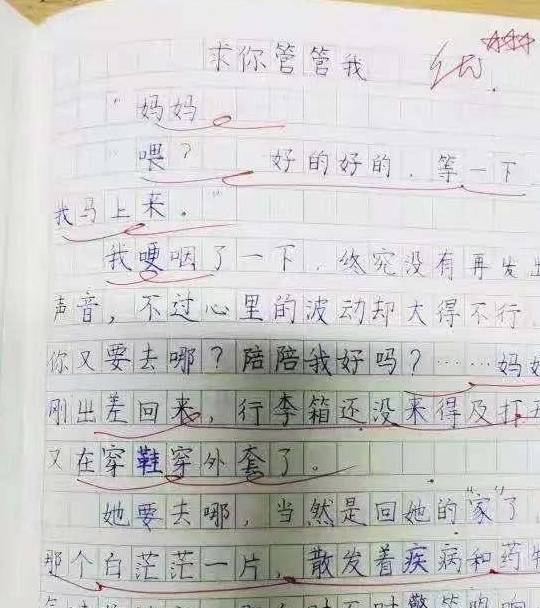 求你管管我
"妈妈
"喂？ 好的好的，等一下
我马上来。"
我哽咽了一下，终究没有再发出
声音，不过心里的波动却大得不行，
你又要去哪？陪陪我好吗？……妈妈
刚出差回来，行李箱还没来得及打开
又在穿鞋穿外套了。
她要去哪，当然是回她的"家"了，
那个白茫茫一片，散发着疾病和药